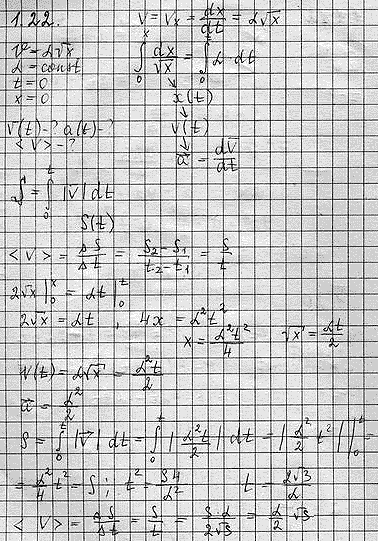 1.22.
V = Vx = dx/dt = α√x
V = α√x
α = const
t = 0
x = 0
∫₀ˣ dx/√x = ∫₀ᵗ α dt
x(t)
V(t) - ? a(t) - ?
<V> - ?
V(t)
a⃗ = dV⃗/dt
S = ∫₀ᵗ |V⃗| dt
S(t)
<V> = ΔS/Δt = (S₂-S₁)/(t₂-t₁) = S/t
2√x |₀ˣ = αt |₀ᵗ
2√x = αt, 4x = α²t²
x = α²t²/4 √x = αt/2
V(t) = α√x = α²t/2
a⃗ = α²/2
S = ∫₀ᵗ |V⃗| dt = ∫₀ᵗ |α²t/2| dt = |α²/2 t²| |₀ᵗ =
= α²/4 t² = S; t² = S4/α² t = 2√S/α
<V> = ΔS/Δt = S/t = S·α/2√S = α/2 √S